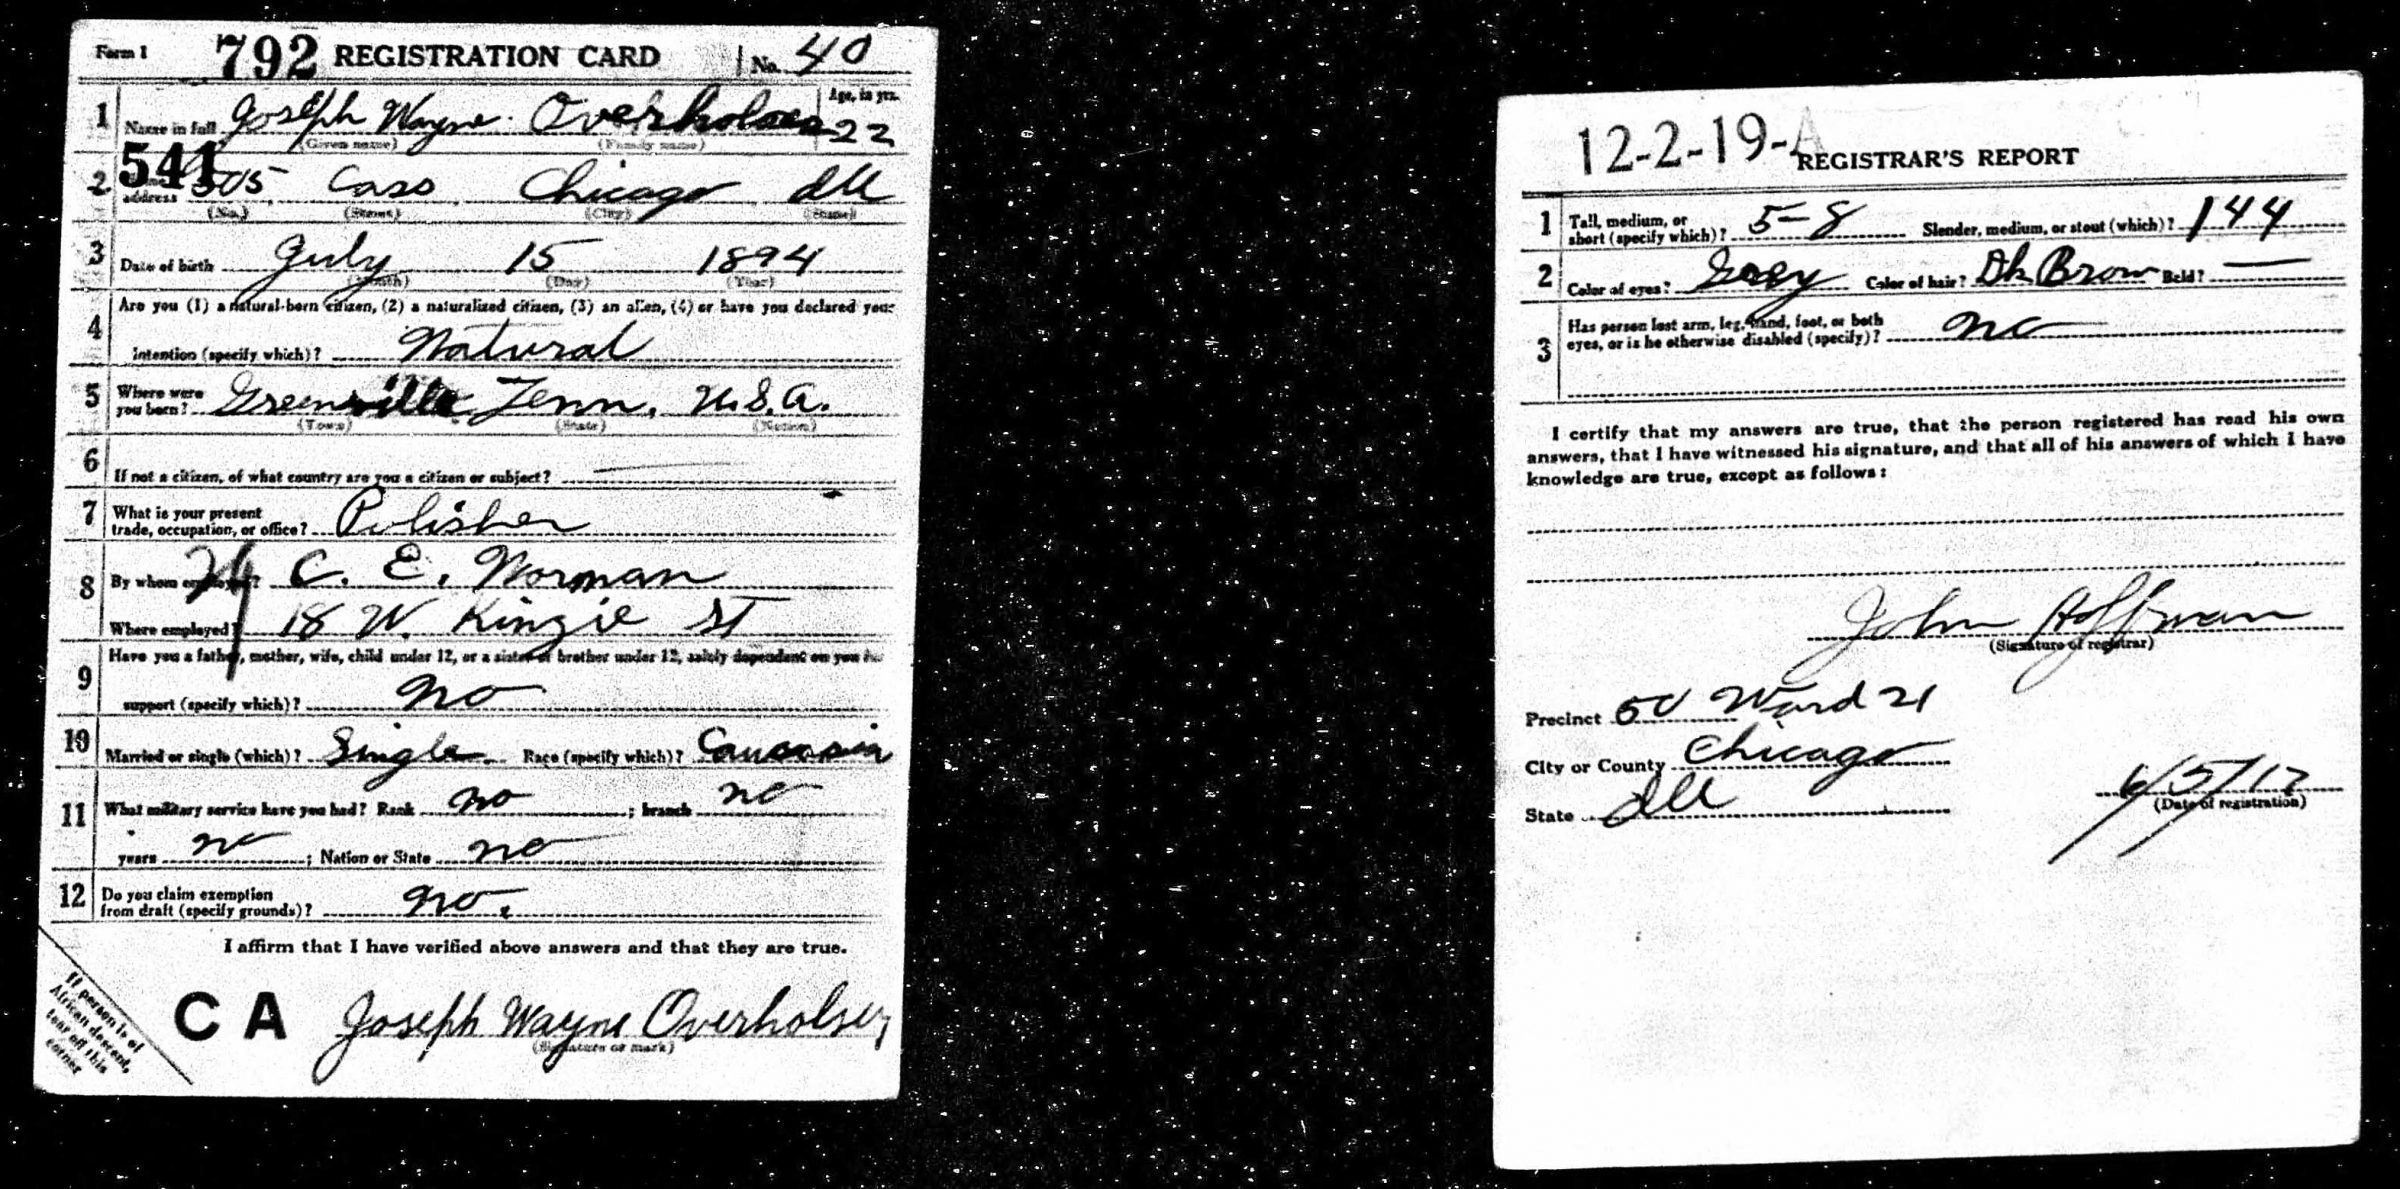 Form 1 792 REGISTRATION CARD No. 40
1 Name in full Joseph Wayne Overholser Age, in yrs. 22
(Given name) (Family name)
541
2 address 505 Cass Chicago Ill
(No.) (Street) (City) (State)
3 Date of birth July 15 1894
(Month) (Day) (Year)
4 Are you (1) a natural-born citizen, (2) a naturalized citizen, (3) an alien, (4) or have you declared your
intention (specify which)? Natural
5 Where were you born? Greenville Tenn. U.S.A.
(Town) (State) (Nation)
6 If not a citizen, of what country are you a citizen or subject? —
7 What is your present
trade, occupation, or office? Polisher
8 By whom employed? C. E. Norman
Where employed? 18 W. Kinzie St
9 Have you a father, mother, wife, child under 12, or a sister or brother under 12, solely dependent on you for
support (specify which)? no
10 Married or single (which)? Single. Race (specify which)? Caucasian
11 What military service have you had? Rank no ; branch no
years no ; Nation or State no
12 Do you claim exemption
from draft (specify grounds)? no.
I affirm that I have verified above answers and that they are true.
If person is of
African descent,
tear off this
corner
C A Joseph Wayne Overholser
(Signature or mark)
12-2-19-A
REGISTRAR'S REPORT
1 Tall, medium, or
short (specify which)? 5-8 Slender, medium, or stout (which)? 144
2 Color of eyes? Grey Color of hair? Dk Brown Bald? —
3 Has person lost arm, leg, hand, foot, or both
eyes, or is he otherwise disabled (specify)? no
I certify that my answers are true, that the person registered has read his own
answers, that I have witnessed his signature, and that all of his answers of which I have
knowledge are true, except as follows:
John Hoffman
(Signature of registrar)
Precinct 50 Ward 21
City or County Chicago
State Ill 6/5/17
(Date of registration)